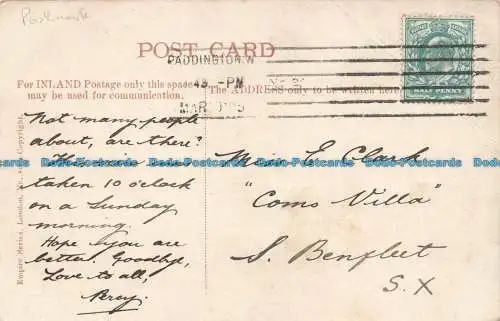 Postmark
POST CARD
PADDINGTON.W
PM
MAR
HALF PENNY
For INLAND Postage only this space
may be used for communication.
The ADDRESS only to be written here
Not many people
about, are there?
This was
taken 10 o'clock
on a Sunday
morning.
Hope you are
better. Goodbye,
Love to all,
Percy.
Miss E Clark
"Coms Villa"
S. Benfleet
S.X
Empire Series, London,
Copyright.
Dodo-Postcards Dodo-Postcards Dodo-Postcards Dodo-Postcards Dodo-Postcards